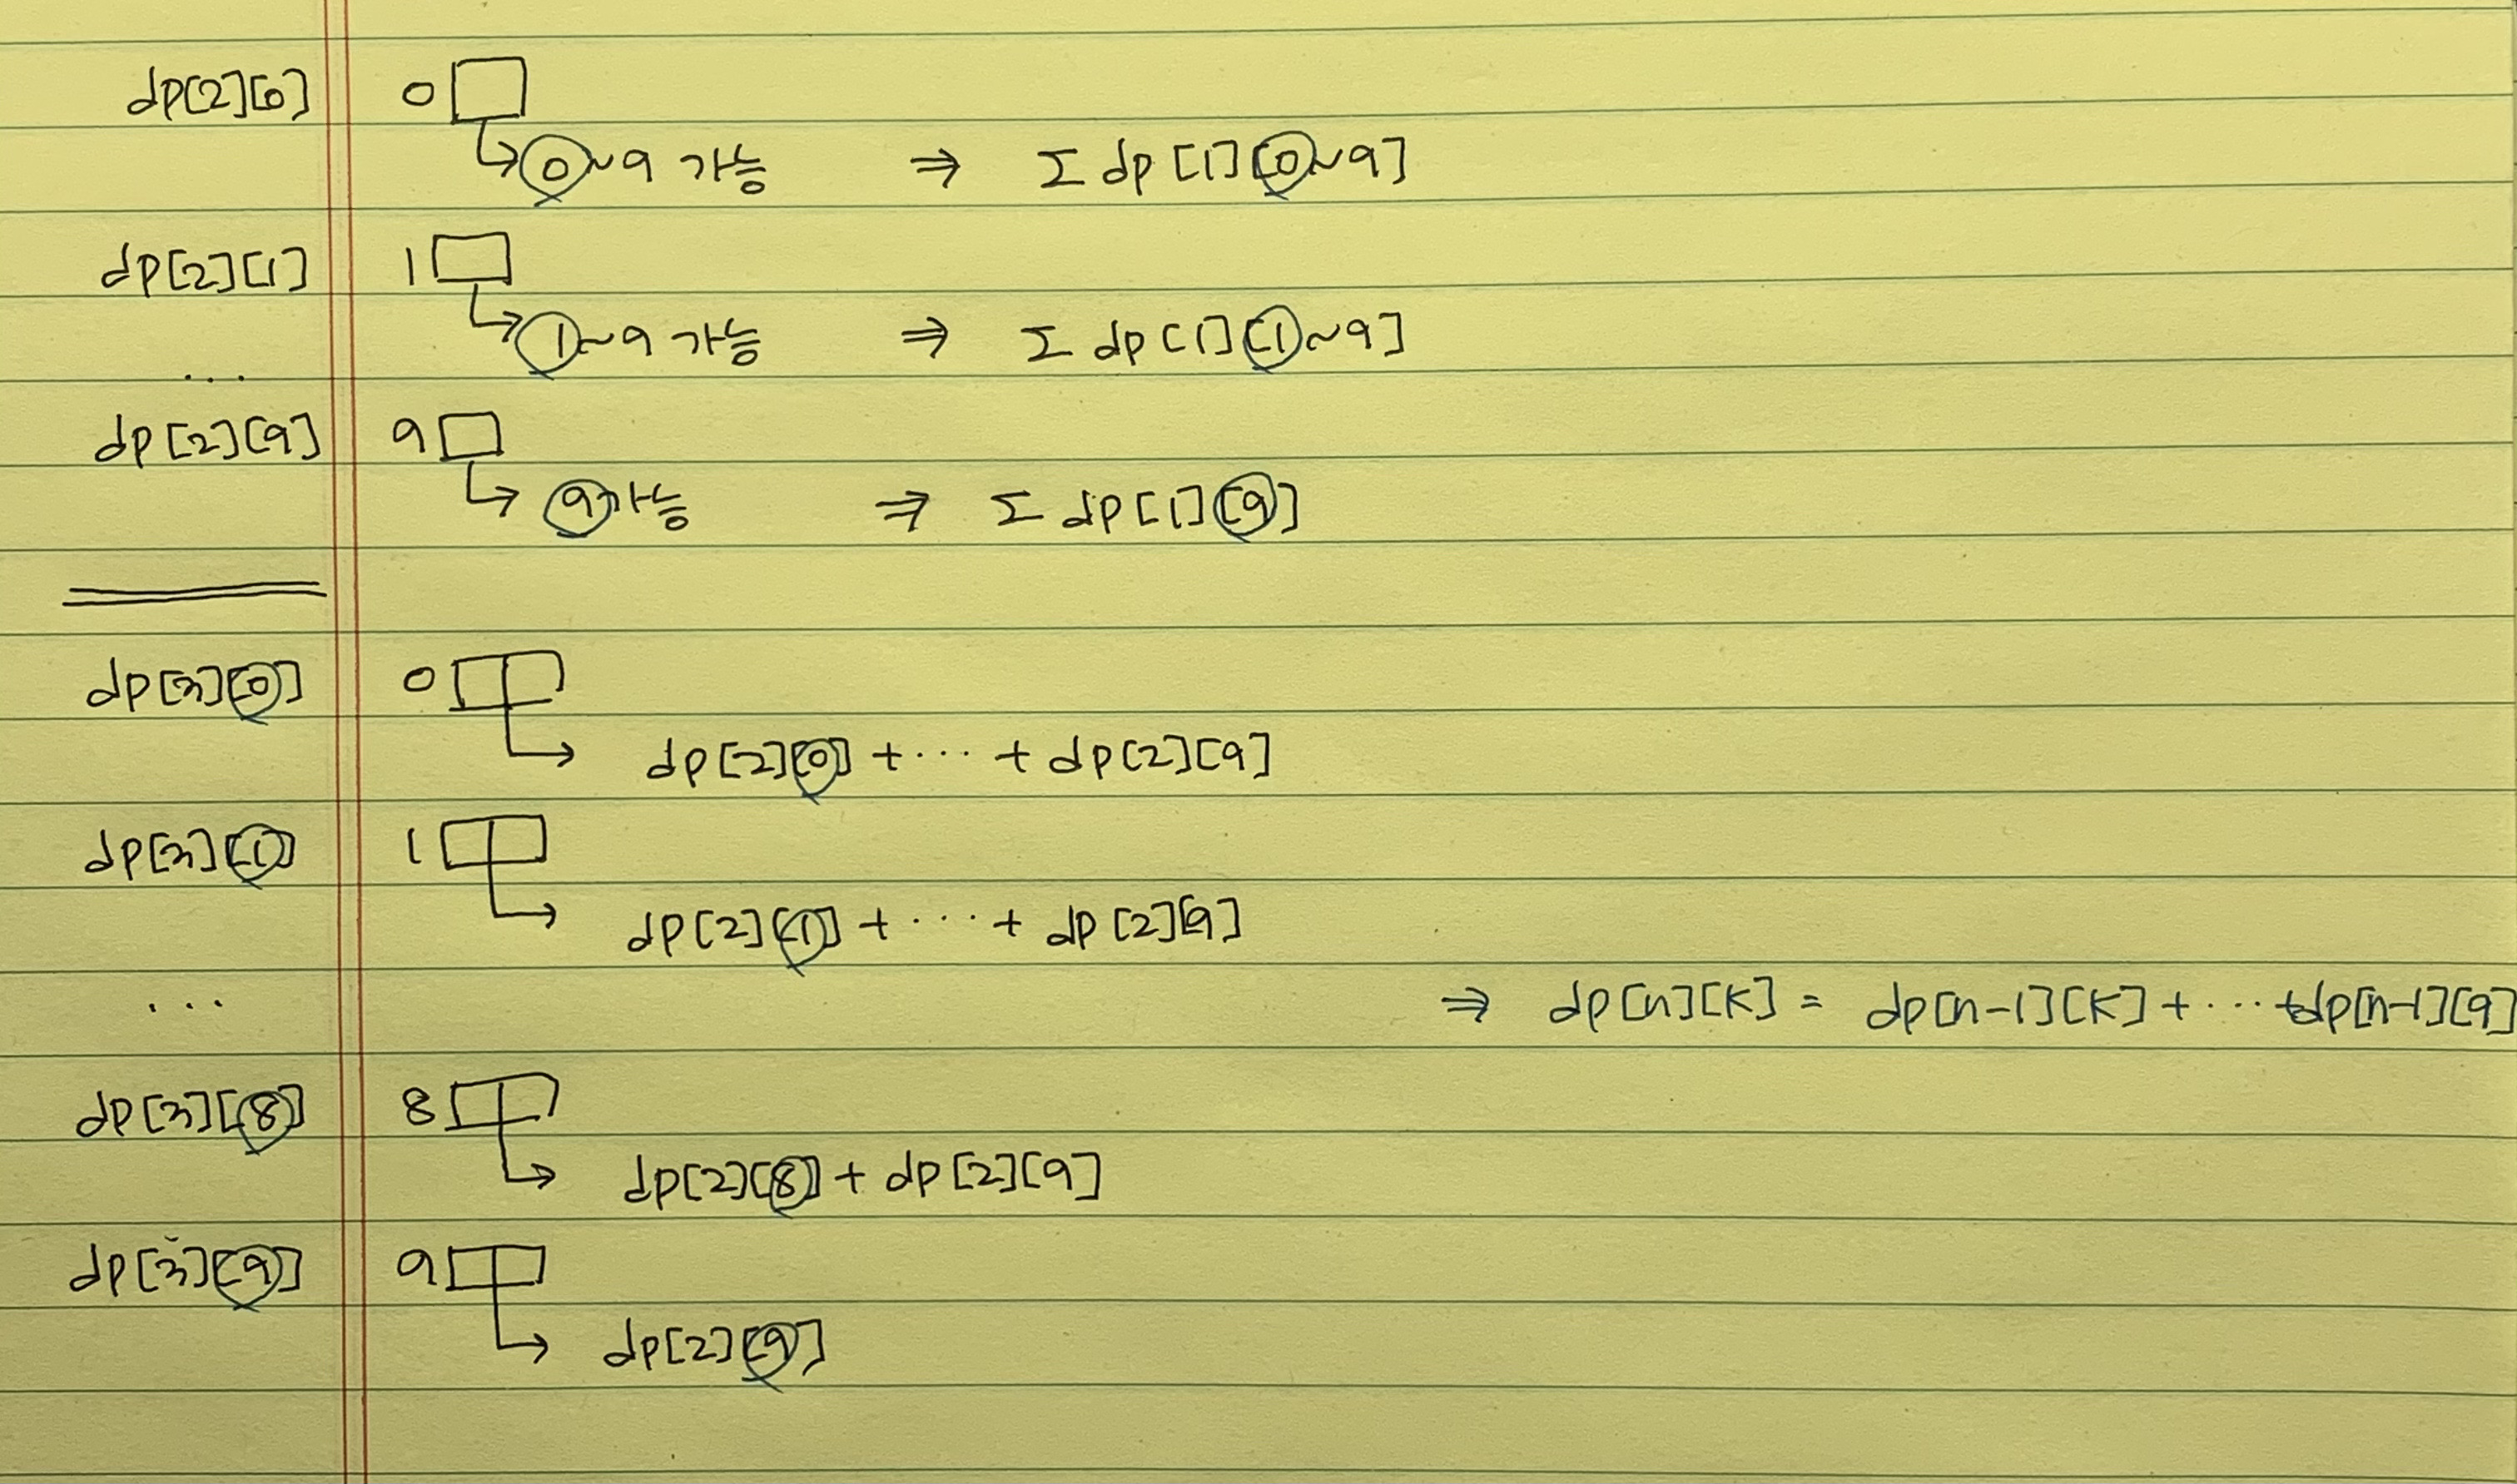 dp[2][0] 0
0~9 가능 ⇒ Σ dp[1][0~9]
dp[2][1] 1
1~9 가능 ⇒ Σ dp[1][1~9]
...
dp[2][9] 9
9가능 ⇒ Σ dp[1][9]
dp[3][0] 0
dp[2][0] + ... + dp[2][9]
dp[3][1] 1
dp[2][1] + ... + dp[2][9]
... ⇒ dp[n][k] = dp[n-1][k] + ... + dp[n-1][9]
dp[3][8] 8
dp[2][8] + dp[2][9]
dp[3][9] 9
dp[2][9]